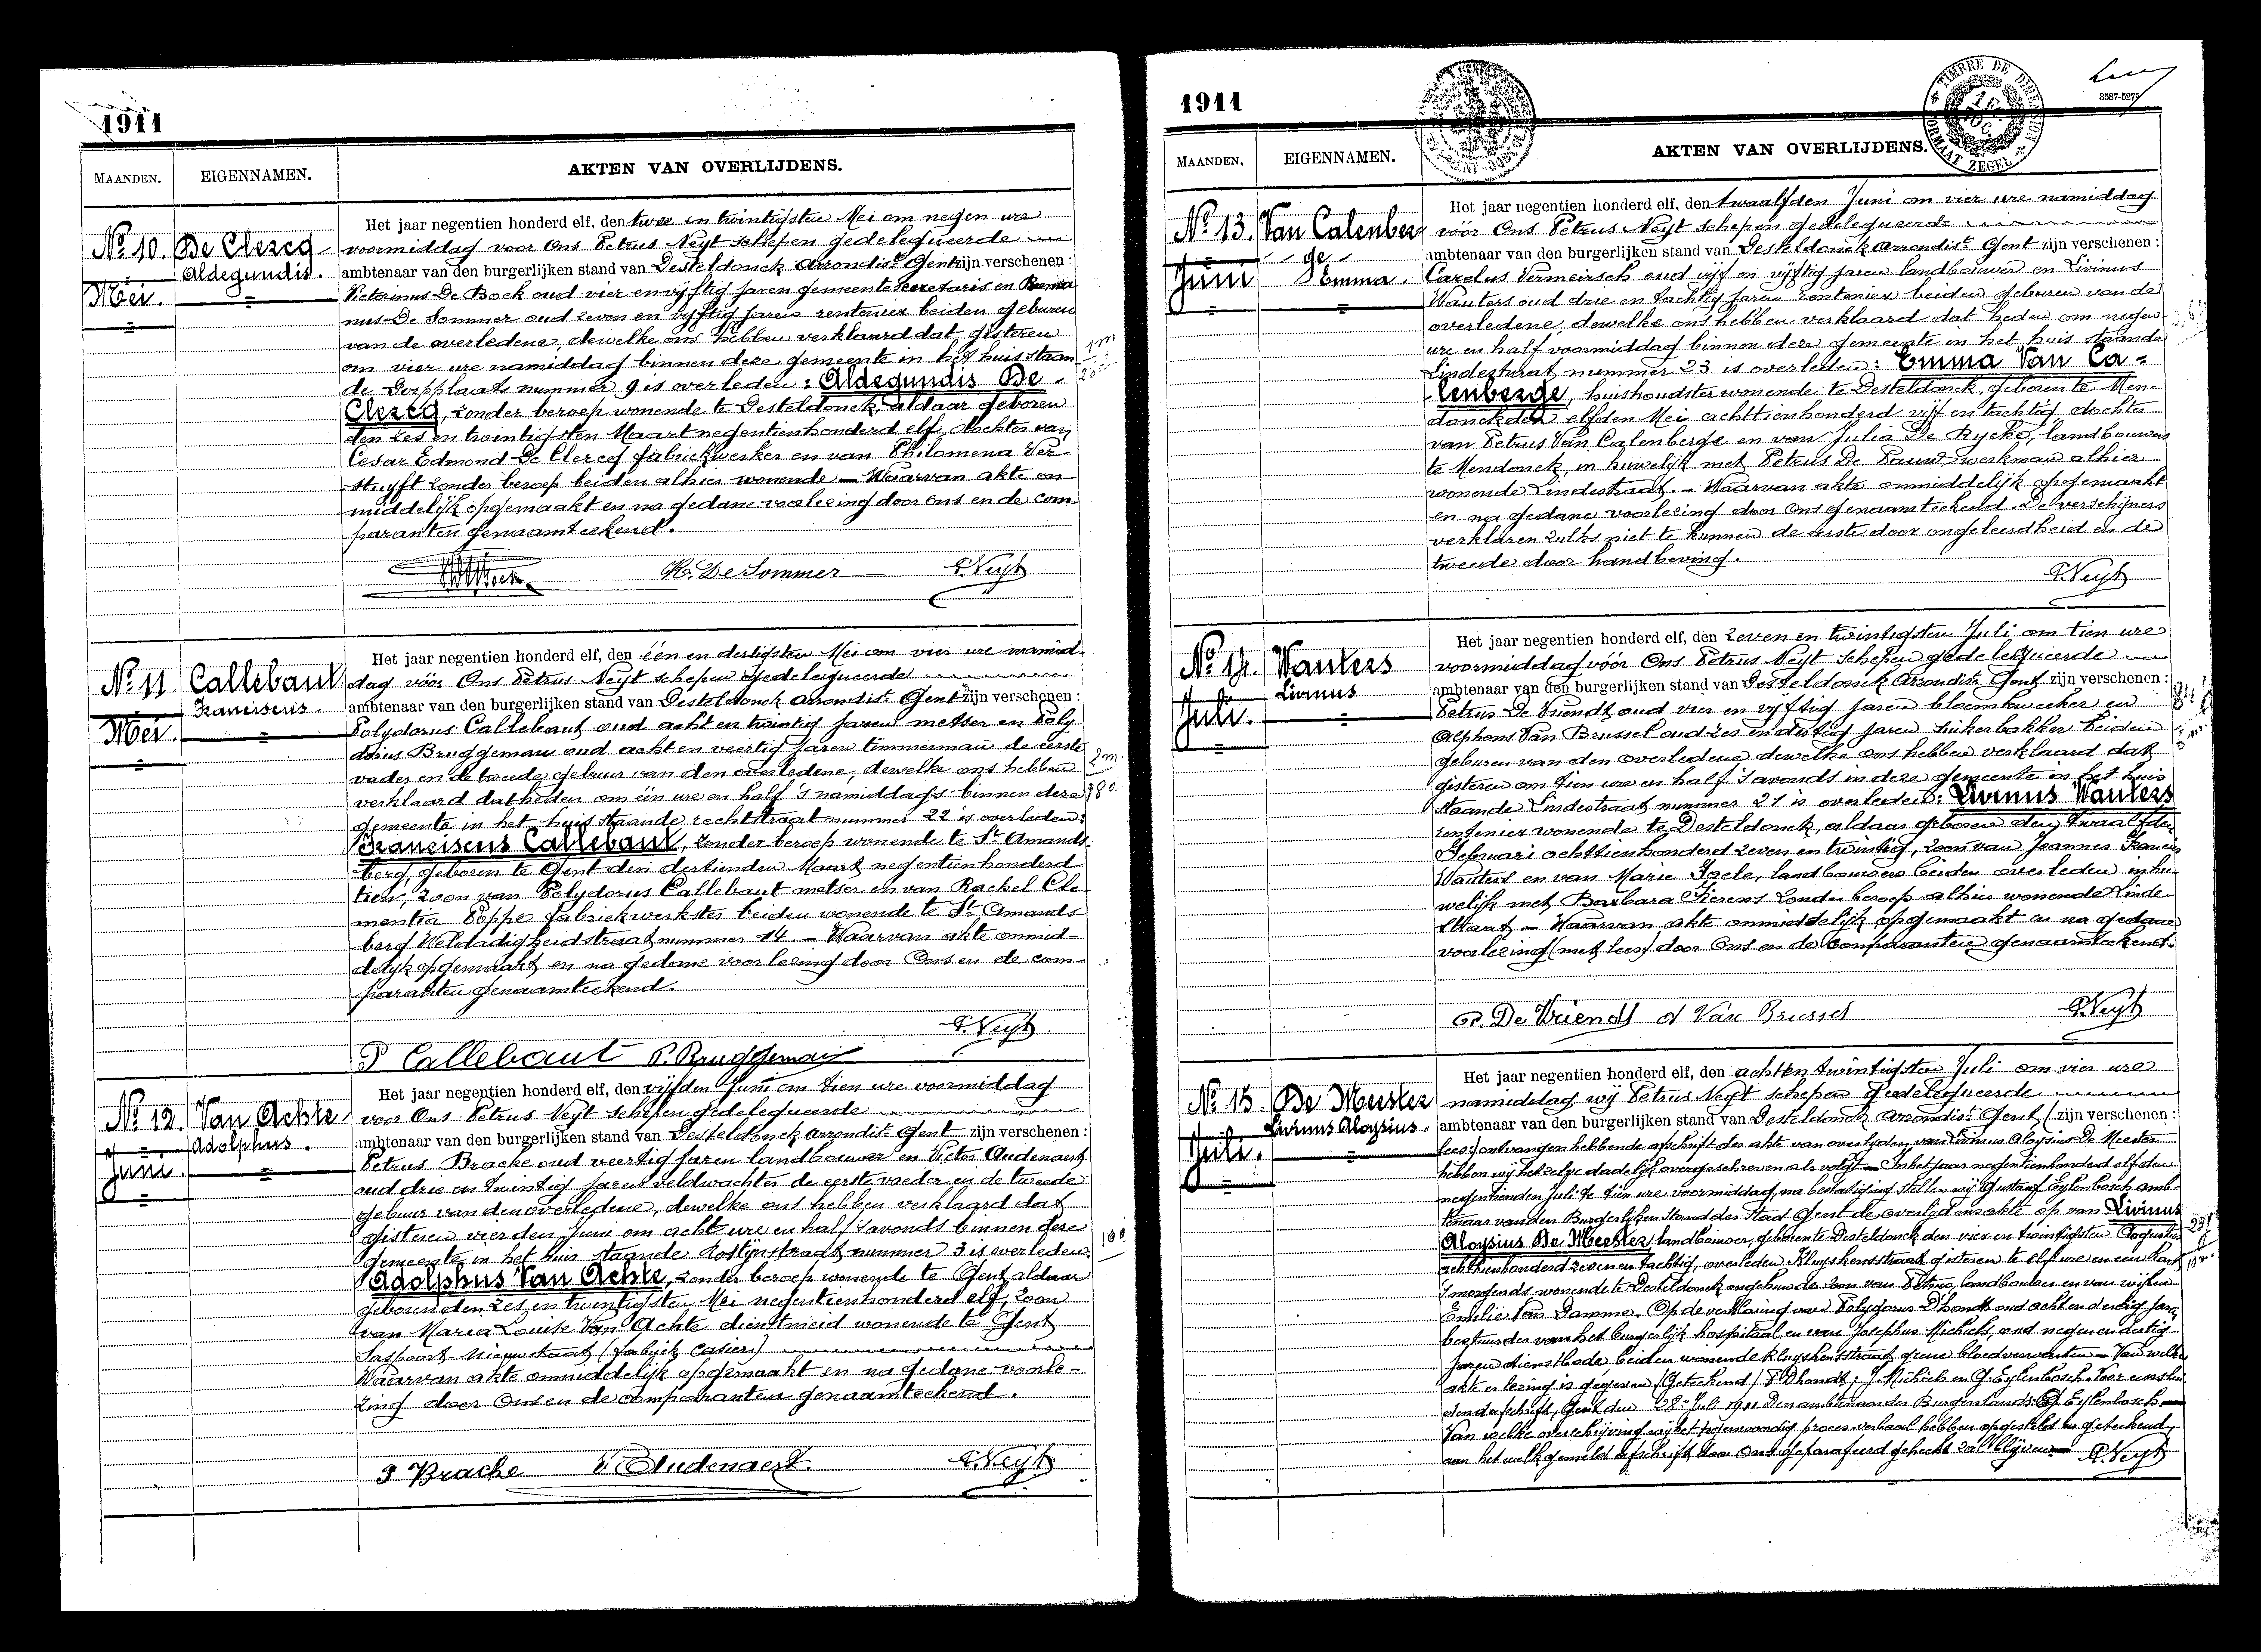 1911
MAANDEN.
EIGENNAMEN.
AKTEN VAN OVERLIJDENS.
No. 10.
Mei.
De Clercq
Aldegundis.
Het jaar negentien honderd elf, den twee en twintigsten Mei om negen ure
voormiddag voor Ons Petrus Neyt schepen gedelegueerde
ambtenaar van den burgerlijken stand van Desteldonck Arrondist. Gent zijn verschenen :
Victorinus De Bock oud vier en vijftig jaren gemeente secretaris en Roma
nus De Sommer oud zeven en vijftig jaren rentenier beiden geburen
van de overledene, dewelke ons hebben verklaard dat gisteren
om vier ure namiddag binnen deze gemeente in het huis staan
de Dorpplaats nummer 9 is overleden : Aldegundis De
Clercq, zonder beroep wonende te Desteldonck, aldaar geboren
den zes en twintigsten Maart negentienhonderd elf, dochter van
Cesar Edmond De Clercq fabriekwerker en van Philomena Ver
stuyft zonder beroep beiden alhier wonende — Waarvan akte on
middelijk opgemaakt en na gedane voorlezing door Ons en de com
paranten genaamteekend.
R. De Sommer P. Neyt
No. 11
Mei.
Callebaut
Franciscus.
Het jaar negentien honderd elf, den één en dertigsten Mei om vier ure namid
dag vóór Ons Petrus Neyt schepen gedelegueerde
ambtenaar van den burgerlijken stand van Desteldonck Arrondist. Gent zijn verschenen :
Polydorus Callebaut oud acht en twintig jaren metser en Poly
dorus Bruggeman oud acht en veertig jaren timmerman de eerste
vader en de tweede gebuur van den overledene, dewelke ons hebben
verklaard dat heden om één ure en half 's namiddags binnen deze
gemeente in het huis staande rechtstraat nummer 22 is overleden :
Franciscus Callebaut, zonder beroep wonende te St. Amands
berg, geboren te Gent den dertienden Maart negentienhonderd
tien, zoon van Polydorus Callebaut metser en van Rachel Cle
mentia Poppe fabriekwerkster beiden wonende te St. Amands
berg Weldadigheidstraat nummer 14. — Waarvan akte onmid-
delijk opgemaakt en na gedane voorlezing door Ons en de com
paranten genaamteekend.
P. Neyt
P Callebaut P. Bruggeman
No. 12.
Juni.
Van Achte
Adolphus.
Het jaar negentien honderd elf, den vijfden Juni om tien ure voormiddag
voor Ons Petrus Neyt schepen gedelegueerde
ambtenaar van den burgerlijken stand van Desteldonck Arrondist. Gent zijn verschenen :
Petrus Bracke oud veertig jaren landbouwer en Victor Audenaert
oud drie en twintig jaren veldwachter de eerste voeder en de tweede
gebuur van den overledene, dewelke ons hebben verklaard dat
gisteren vierden Juni om acht ure en half 's avonds binnen deze
gemeente in het huis staande nummer 3 is overleden :
Adolphus Van Achte, zonder beroep wonende te Gent, aldaar
geboren den zes en twintigsten Mei negentienhonderd elf, zoon
van Maria Louise Van Achte dienstmeid wonende te Gent
Saspoort Nieuwstraat (fabrijk Casier)
Waarvan akte onmiddelijk opgemaakt en na gedane voorle-
zing door Ons en de comparanten genaamteekend.
P Bracke V. Audenaert. P. Neyt
1911
TIMBRE DE DIMENSION
FORMAAT ZEGEL
3587-5279
MAANDEN.
EIGENNAMEN.
AKTEN VAN OVERLIJDENS.
No. 13.
Juni
Van Calenber
ge
Emma.
Het jaar negentien honderd elf, den twaalfden Juni om vier ure namiddag
vóór Ons Petrus Neyt schepen gedelegueerde
ambtenaar van den burgerlijken stand van Desteldonck Arrondist. Gent zijn verschenen :
Carolus Vermeirsch oud vijf en vijftig jaren landbouwer en Livinus
Wauters oud drie en tachtig jaren rentenier beiden geburen van de
overledene, dewelke ons hebben verklaard dat heden om negen
ure en half voormiddag binnen deze gemeente in het huis staande
Lindestraat nummer 23 is overleden : Emma Van Ca-
lenberge, huishoudster wonende te Desteldonck, geboren te Men-
donck den elfden Mei achttienhonderd vijf en tachtig dochter
van Petrus Van Calenberge en van Julia De Rycke, landbouwers
te Mendonck, in huwelijk met Petrus De Pauw werkman alhier
wonende Lindestraat. — Waarvan akte onmiddelijk opgemaakt
en na gedane voorlezing door Ons genaamteekend. De verschijners
verklaren zulks niet te kunnen de eerste door ongeleerdheid en de
tweede door handbeving.
P. Neyt
No. 14.
Juli.
Wauters
Livinus
Het jaar negentien honderd elf, den zeven en twintigsten Juli om tien ure
voormiddag vóór Ons Petrus Neyt Schepen gedelegueerde
ambtenaar van den burgerlijken stand van Desteldonck Arrondist. Gent zijn verschenen :
Petrus De Vriendt oud vier en vijftig jaren bloemkweeker en
Alphons Van Brussel oud zes en dertig jaren suikerbakker beiden
geburen van den overledene dewelke ons hebben verklaard dat
gisteren om tien ure en half 's avonds in deze gemeente in het huis
staande Lindestraat nummer 21 is overleden : Livinus Wauters
rentenier wonende te Desteldonck, aldaar geboren den twaalfden
Februari achttienhonderd zeven en twintig, zoon van Joannes Francis
Wauters en van Marie Joele, landbouwers beiden overleden in hu-
welijk met Barbara Fierens zonder beroep alhier wonende Linde
straat — Waarvan akte onmiddelijk opgemaakt en na gedane
voorlezing (met lees) door Ons en de Comparanten genaamteekend.
P. De Vriendt A Van Brussel P. Neyt
No. 15.
Juli.
De Meester
Livinus Aloysius.
Het jaar negentien honderd elf, den acht en twintigsten Juli om vier ure
namiddag wij Petrus Neyt schepen gedelegueerde
ambtenaar van den burgerlijken stand van Desteldonck Arrondist. Gent (zijn verschenen :
lees:) ontvangen hebbende afschrift der akte van overlyden van Livinus Aloysius De Meester
hebben wij hetzelve dadelijk overgeschreven als volgt — In het jaar negentienhonderd elf den
negentienden Juli te tien ure voormiddag, na bestatiging stellen wij Gustaaf Eylenbosch amb-
tenaar van den Burgerlijken Stand der Stad Gent de overlijdensakte op van Livinus
Aloysius De Meester, landbouwer, geboren te Desteldonck den vier en twintigsten Augustus
achttienhonderd zeven en tachtig, overleden Kluyskensstraat gisteren te elf ure en een kwart
's morgends, wonende te Desteldonck ongehuwde zoon van Petrus, landbouwer en van wijlen
Emilie Van Damme. Op de verklaring van Polydorus D'hondt oud acht en dertig jaren
bestuurder van het burgerlijk hospitaal en van Josephus Michiels, oud negen en dertig
jaren dienstbode, beiden wonende Kluyskensstraat, geene bloedverwanten — Van welke
akte er lezing is gegeven (Geteekend) P. D'hondt, J. Michiels en G. Eylenbosch. Voor eenslui
dend afschrift, Gent den 28 Juli 1911 Den ambtenaar der Burgerstand G. Eylenbosch —
Van welke overschrijving wij het tegenwoordig proces-verbaal hebben opgesteld en geteekend,
aan hetwelk gemeld afschrift door Ons geparafeerd gehecht zal blijven — P. Neyt